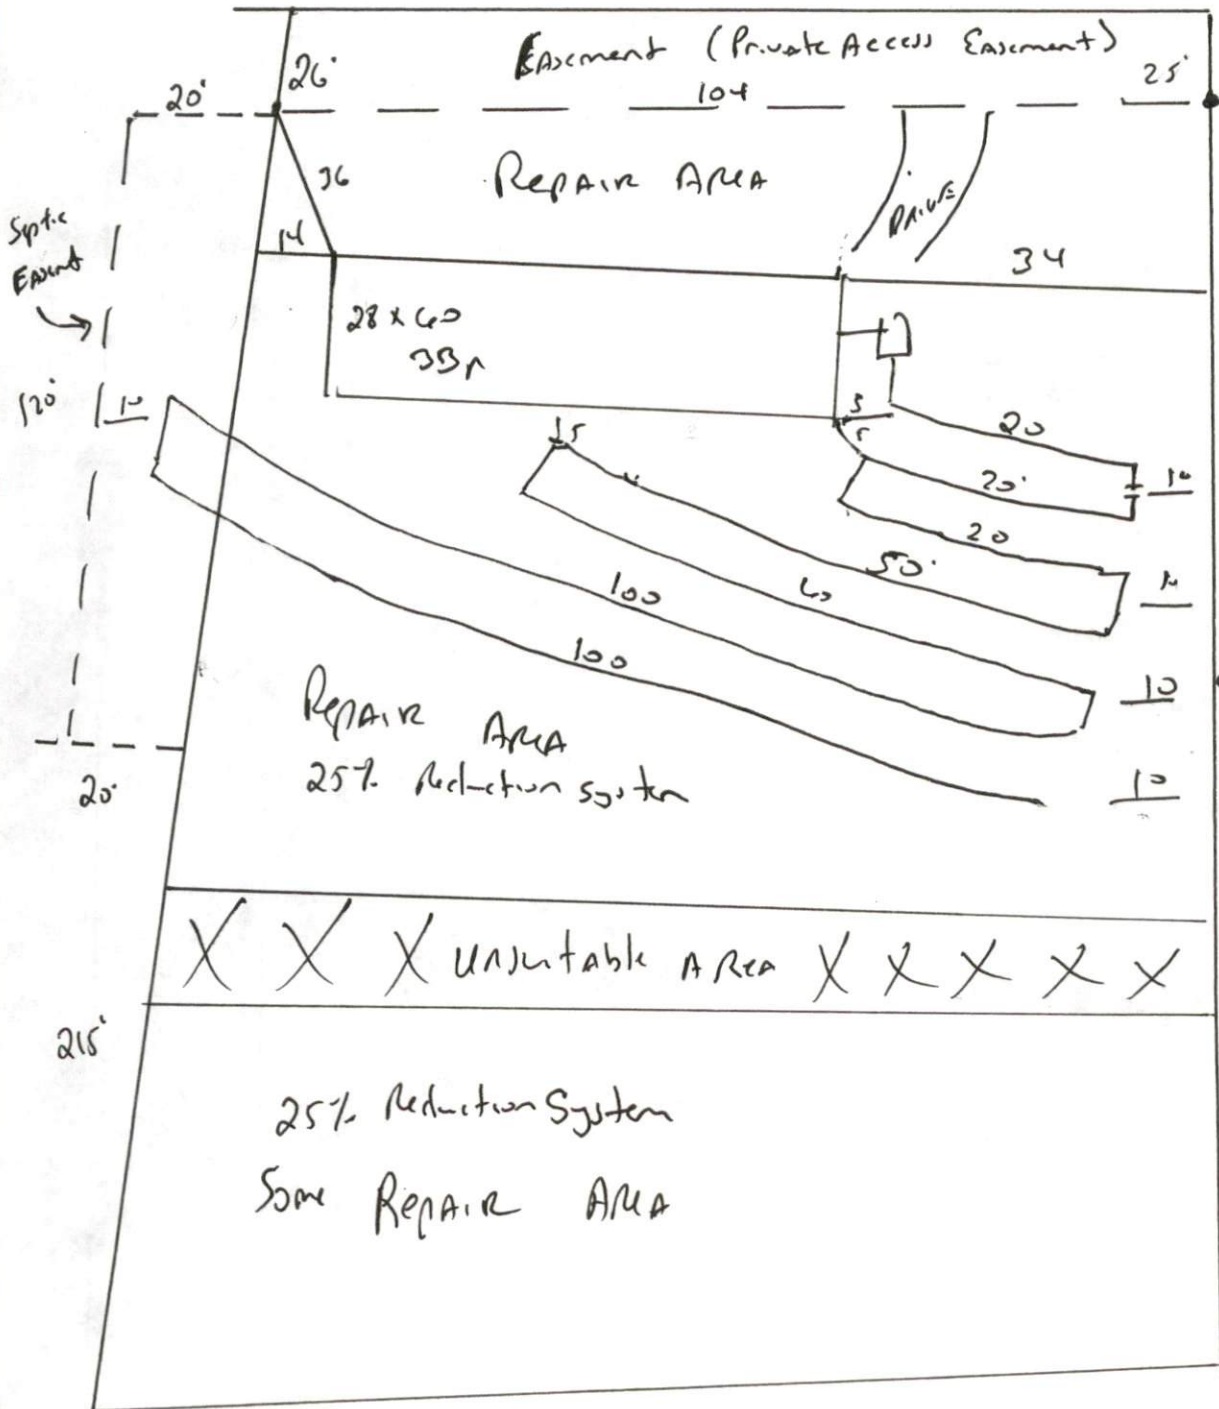 Easement (Private Access Easement)
26'
25'
20'
104
36
Repair Area
Drive
Septic
14
34
28 x 60
3Br
120'
10
5
20
15
20'
10
20
50'
100
60
10
100
10
Repair Area
25% Reduction system
10
20'
X X X Unsuitable Area X X X X X
215'
25% Reduction System
Some Repair Area